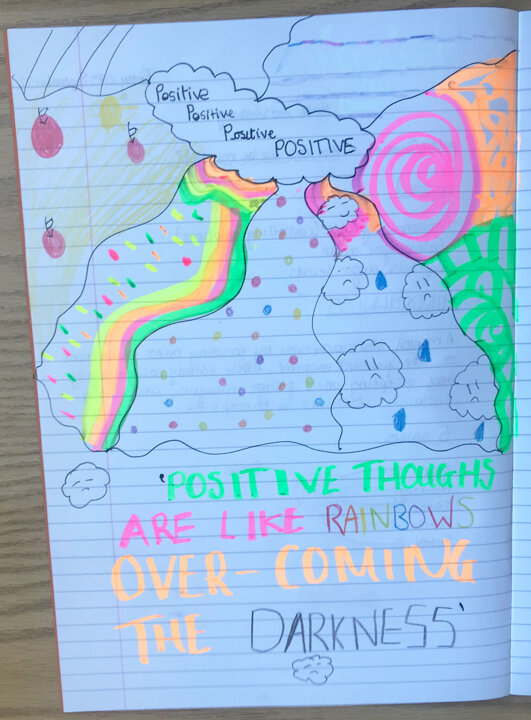 Positive
Positive
Positive
POSITIVE
'POSITIVE THOUGHS
ARE LIKE RAINBOWS
OVER-COMING
THE DARKNESS'